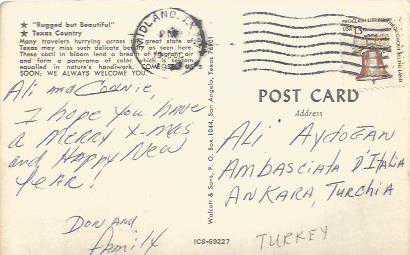 ★ "Rugged but Beautiful"
★ Texas Country
Many travelers hurrying across the great state of
Texas may miss such delicate beauty as seen here.
These cacti in bloom lend a breath of fragrant air
and form a panorama of color which is seldom
equalled in nature's handiwork. COME SEE US
SOON: WE ALWAYS WELCOME YOU.
Ali
I hope you have
a Merry X-mas
and Happy New
Year!
Don and
family
ICS-69227
Walcott & Sons, P. O. Box 1044, San Angelo, Texas 76901
MIDLAND, TX
PM
USA 13c
POST CARD
Address
Ali Aydoğan
Ambasciata d'Italia
Ankara, Turchia
TURKEY